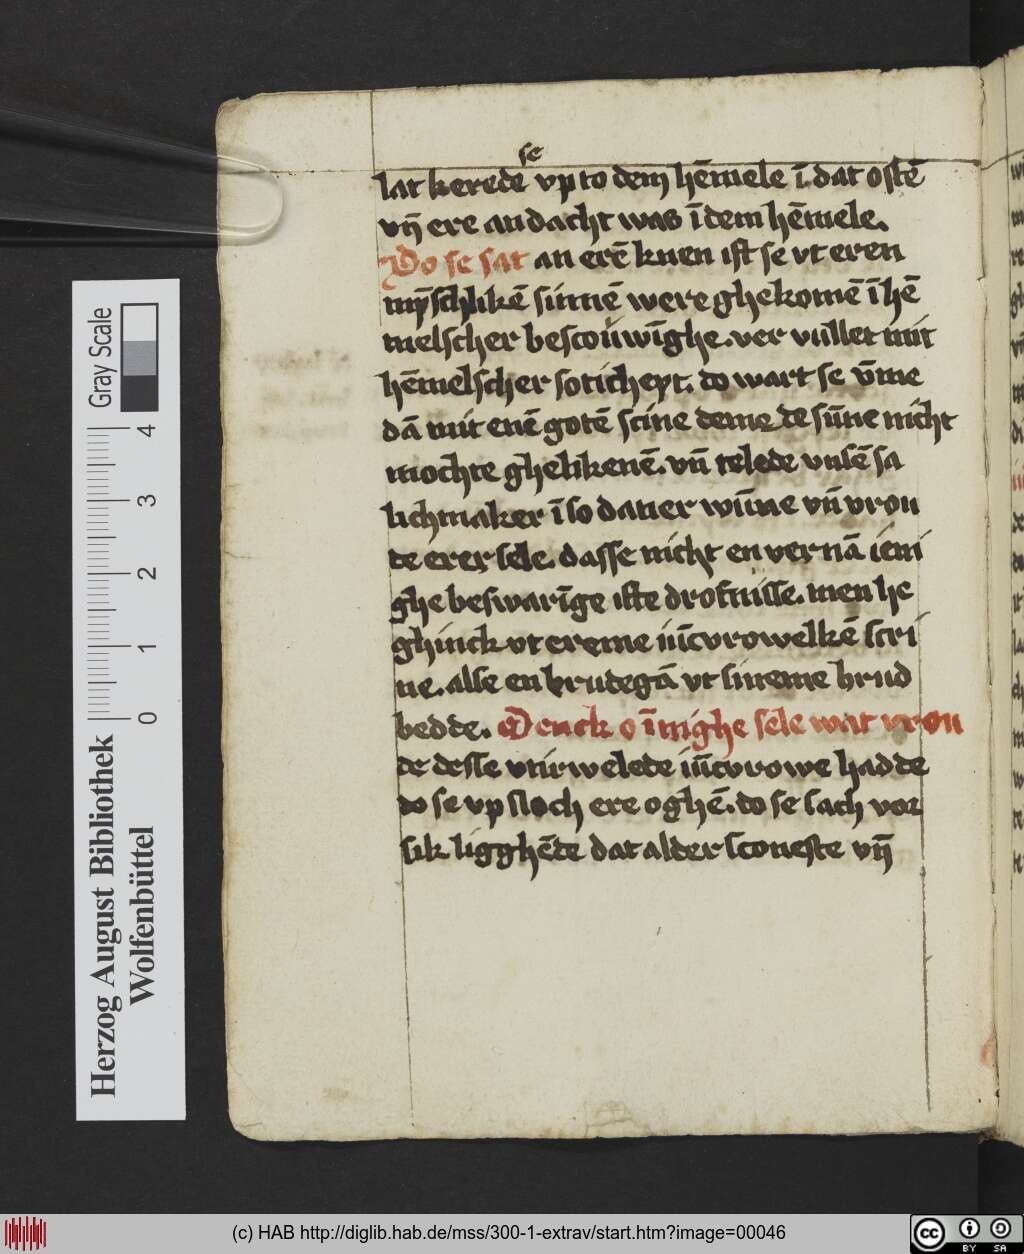 se
lat kerede vp to dem hēmele ī dat ostē
vn̄ ere andacht was ī dem hēmele.
Do se sat an erē knen ift se vt eren
myſchlikē sinnē were ghekomē ī hē
melscher bescouwīghe. ver vullet mit
hēmelscher soticheyt. do wart se v̄me
dā mit enē gotē scine deme de sūne nicht
mochte ghelikenē. vn̄ telede vnsē sa
lichmaker ī so daner wūne vn̄ vrou
de erer sele. dasse nicht en vernā ieni
ghe beswarīge ifte drofnisse. men he
ghinck vt ereme iūcvrowelkē scri
ne. alse en brudegā vt sineme brud
bedde. Denck o īnighe sele wat vrou
de desse vtirwelede iūcvrowe hadde
do se vp sloch ere oghē. do se sach vor
sik ligghēde dat alder sconeste vn̄
Gray Scale
4
3
2
1
0
Herzog August Bibliothek
Wolfenbüttel
(c) HAB http://diglib.hab.de/mss/300-1-extrav/start.htm?image=00046
cc
BY SA